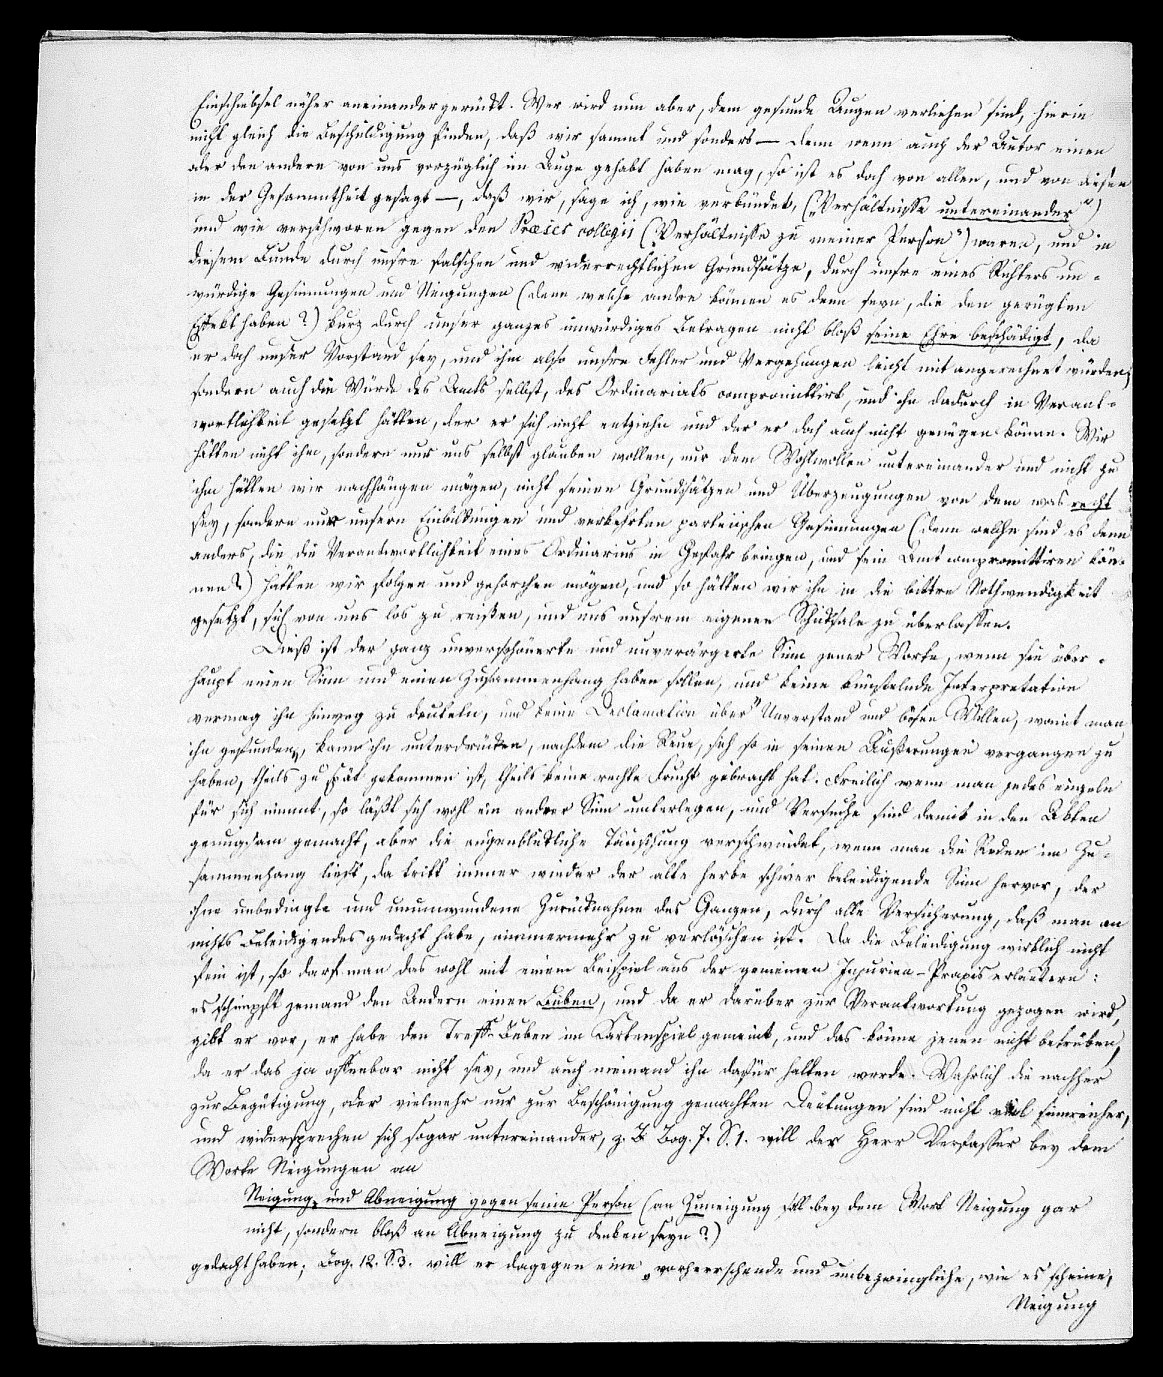 Einschiebsel näher aneinandergerückt. Wer wird nun aber, dem gesunde Augen verliehen sind, hierin
nicht gleich die Beschuldigung finden, daß wir sammt und sonders — denn wenn auch der Autor einen
oder den andern von uns vorzüglich im Auge gehabt haben mag, so ist es doch von allen, und von diesen
in der Gesammtheit gesagt —, daß wir, sage ich, wie verbündet, („Verhältnisse untereinander“)
und wie verschworen gegen den Præses collegii („Verhältnisse zu meiner Person“) waren, und in
diesem Bunde durch unsre falschen und widerrechtlichen Grundsätze, durch unsre eines Richters un-
würdige Gesinnungen und Neigungen (denn welche andre können es denn seyn, die den gerügten
Effekt haben?) kurz durch unser ganzes unwürdiges Betragen nicht bloß seine Ehre beschädigt, da
er doch unser Vorstand sey, und ihm also unsre Fehler und Vergehungen leicht mit angerechnet würden,
sondern auch die Würde des Amts selbst, des Ordinariats compromittirt, und ihn dadurch in Verant-
wortlichkeit gesetzt hätten, der er sich nicht entziehn und der er doch auch nicht genügen könne. Wir
hätten nicht ihm, sondern nur uns selbst glauben wollen, nur dem Wohlwollen untereinander und nicht zu
ihm hätten wir nachhängen mögen, nicht seinen Grundsätzen und Überzeugungen von dem was recht
sey, sondern nur unsern Einbildungen und verkehrten parteiischen Gesinnungen (denn welche sind es denn
anders, die die Verantwortlichkeit eines Ordinarius in Gefahr bringen, und sein Amt compromittiren kön-
nen?) hätten wir folgen und gehorchen mögen, und so hätten wir ihn in die bittre Nothwendigkeit
gesetzt, sich von uns los zu reißen, und uns unsrem eigenen Schicksale zu überlassen.
Dieß ist der ganz unverschönerte und unverärgerte Sinn jener Worte, wenn sie über-
haupt einen Sinn und einen Zusammenhang haben sollen, und keine künstelnde Interpretation
vermag ihn hinweg zu deuteln, und keine Declamation über „Unverstand und bösen Willen, womit man
ihn gefunden“, kann ihn unterdrücken, nachdem die Reue, sich so in seinen Äußerungen vergangen zu
haben, theils zu spät gekommen ist, theils keine rechte Frucht gebracht hat. Freilich wenn man jedes einzeln
für sich nimmt, so läßt sich wohl ein andrer Sinn unterlegen, und Versuche sind damit in den Akten
genugsam gemacht, aber die augenblickliche Täuschung verschwindet, wenn man die Reden im Zu-
sammenhang liest, da tritt immer wieder der alte herbe schwer beleidigende Sinn hervor, der
ohne unbedingte und unumwundene Zurücknahme des Ganzen, durch alle Versicherung, daß man an
nichts Beleidigendes gedacht habe, nimmermehr zu verlöschen ist. Da die Beleidigung wirklich nicht
fein ist, so darf man das wohl mit einem Beispiel aus der gemeinen Injurien-Praxis erläutern:
es schimpft jemand den Andern einen Buben, und da er darüber zur Verantwortung gezogen wird,
gibt er vor, er habe den Treff-Buben im Kartenspiel gemeint, und das könne jenen nicht betrüben,
da er das ja offenbar nicht sey, und auch niemand ihn dafür halten werde. Wahrlich die nachher
zur Begütigung, oder vielmehr nur zur Beschönigung gemachten Deutungen sind nicht viel sinnreicher,
und widersprechen sich sogar untereinander, z. B. Bog. 7. S. 1. will der Herr Verfasser bey dem
Worte Neigungen an
Neigung und Abneigung gegen seine Person (an Zuneigung soll bey dem Wort Neigung gar
nicht, sondern bloß an Abneigung zu denken seyn?)
gedacht haben; Bog. 12. S. 3. will er dagegen eine „vorherrschende und unbezwingliche, wie es scheine,
Neigung